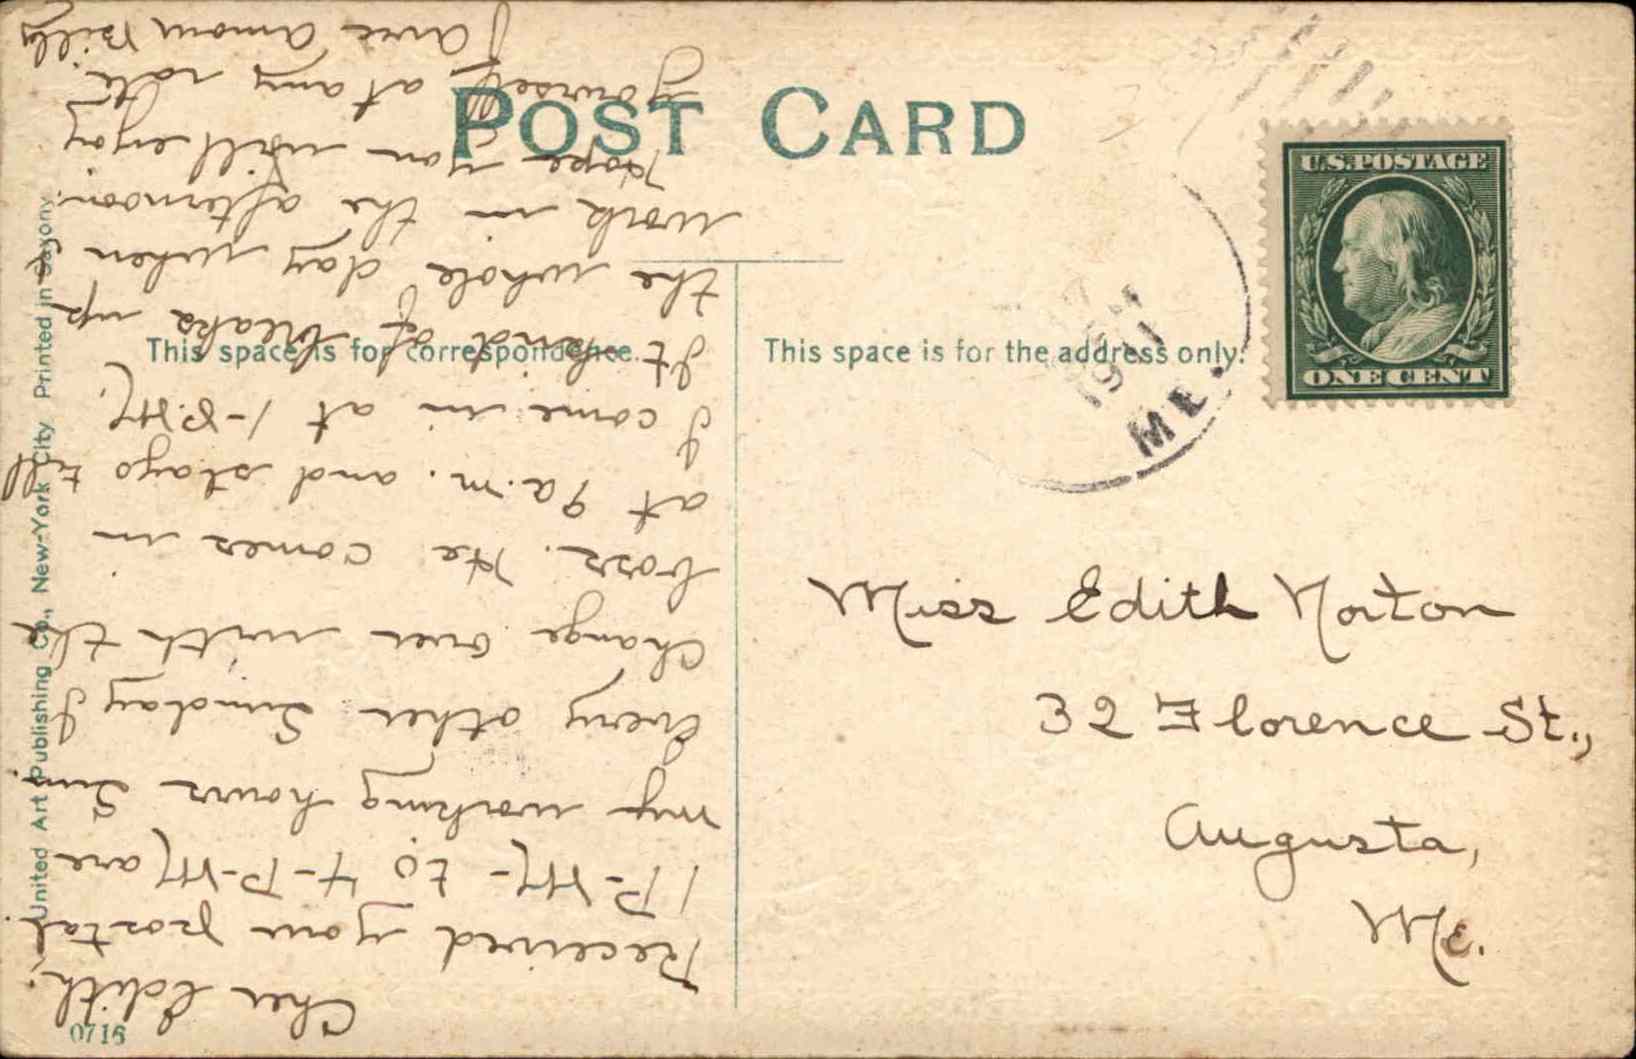 POST CARD
This space is for correspondence.
This space is for the address only.
U.S. POSTAGE
ONE CENT
1911
ME.
Miss Edith Norton
32 Florence St.,
Augusta,
Me.
Cher Edith:
Received your postal.
1 P-M- to 4-P-M are
my working hours Sun.
Every other Sunday I
change over with the
boss. He comes in
at 9 a.m. and stays till
I come in at 1-P.M.
It kind of breaks up
the whole day when I
work in the afternoon.
Hope you will enjoy
yourself at any rate.
Avec Amour Billy
United Art Publishing Co., New-York City Printed in Saxony.
0716